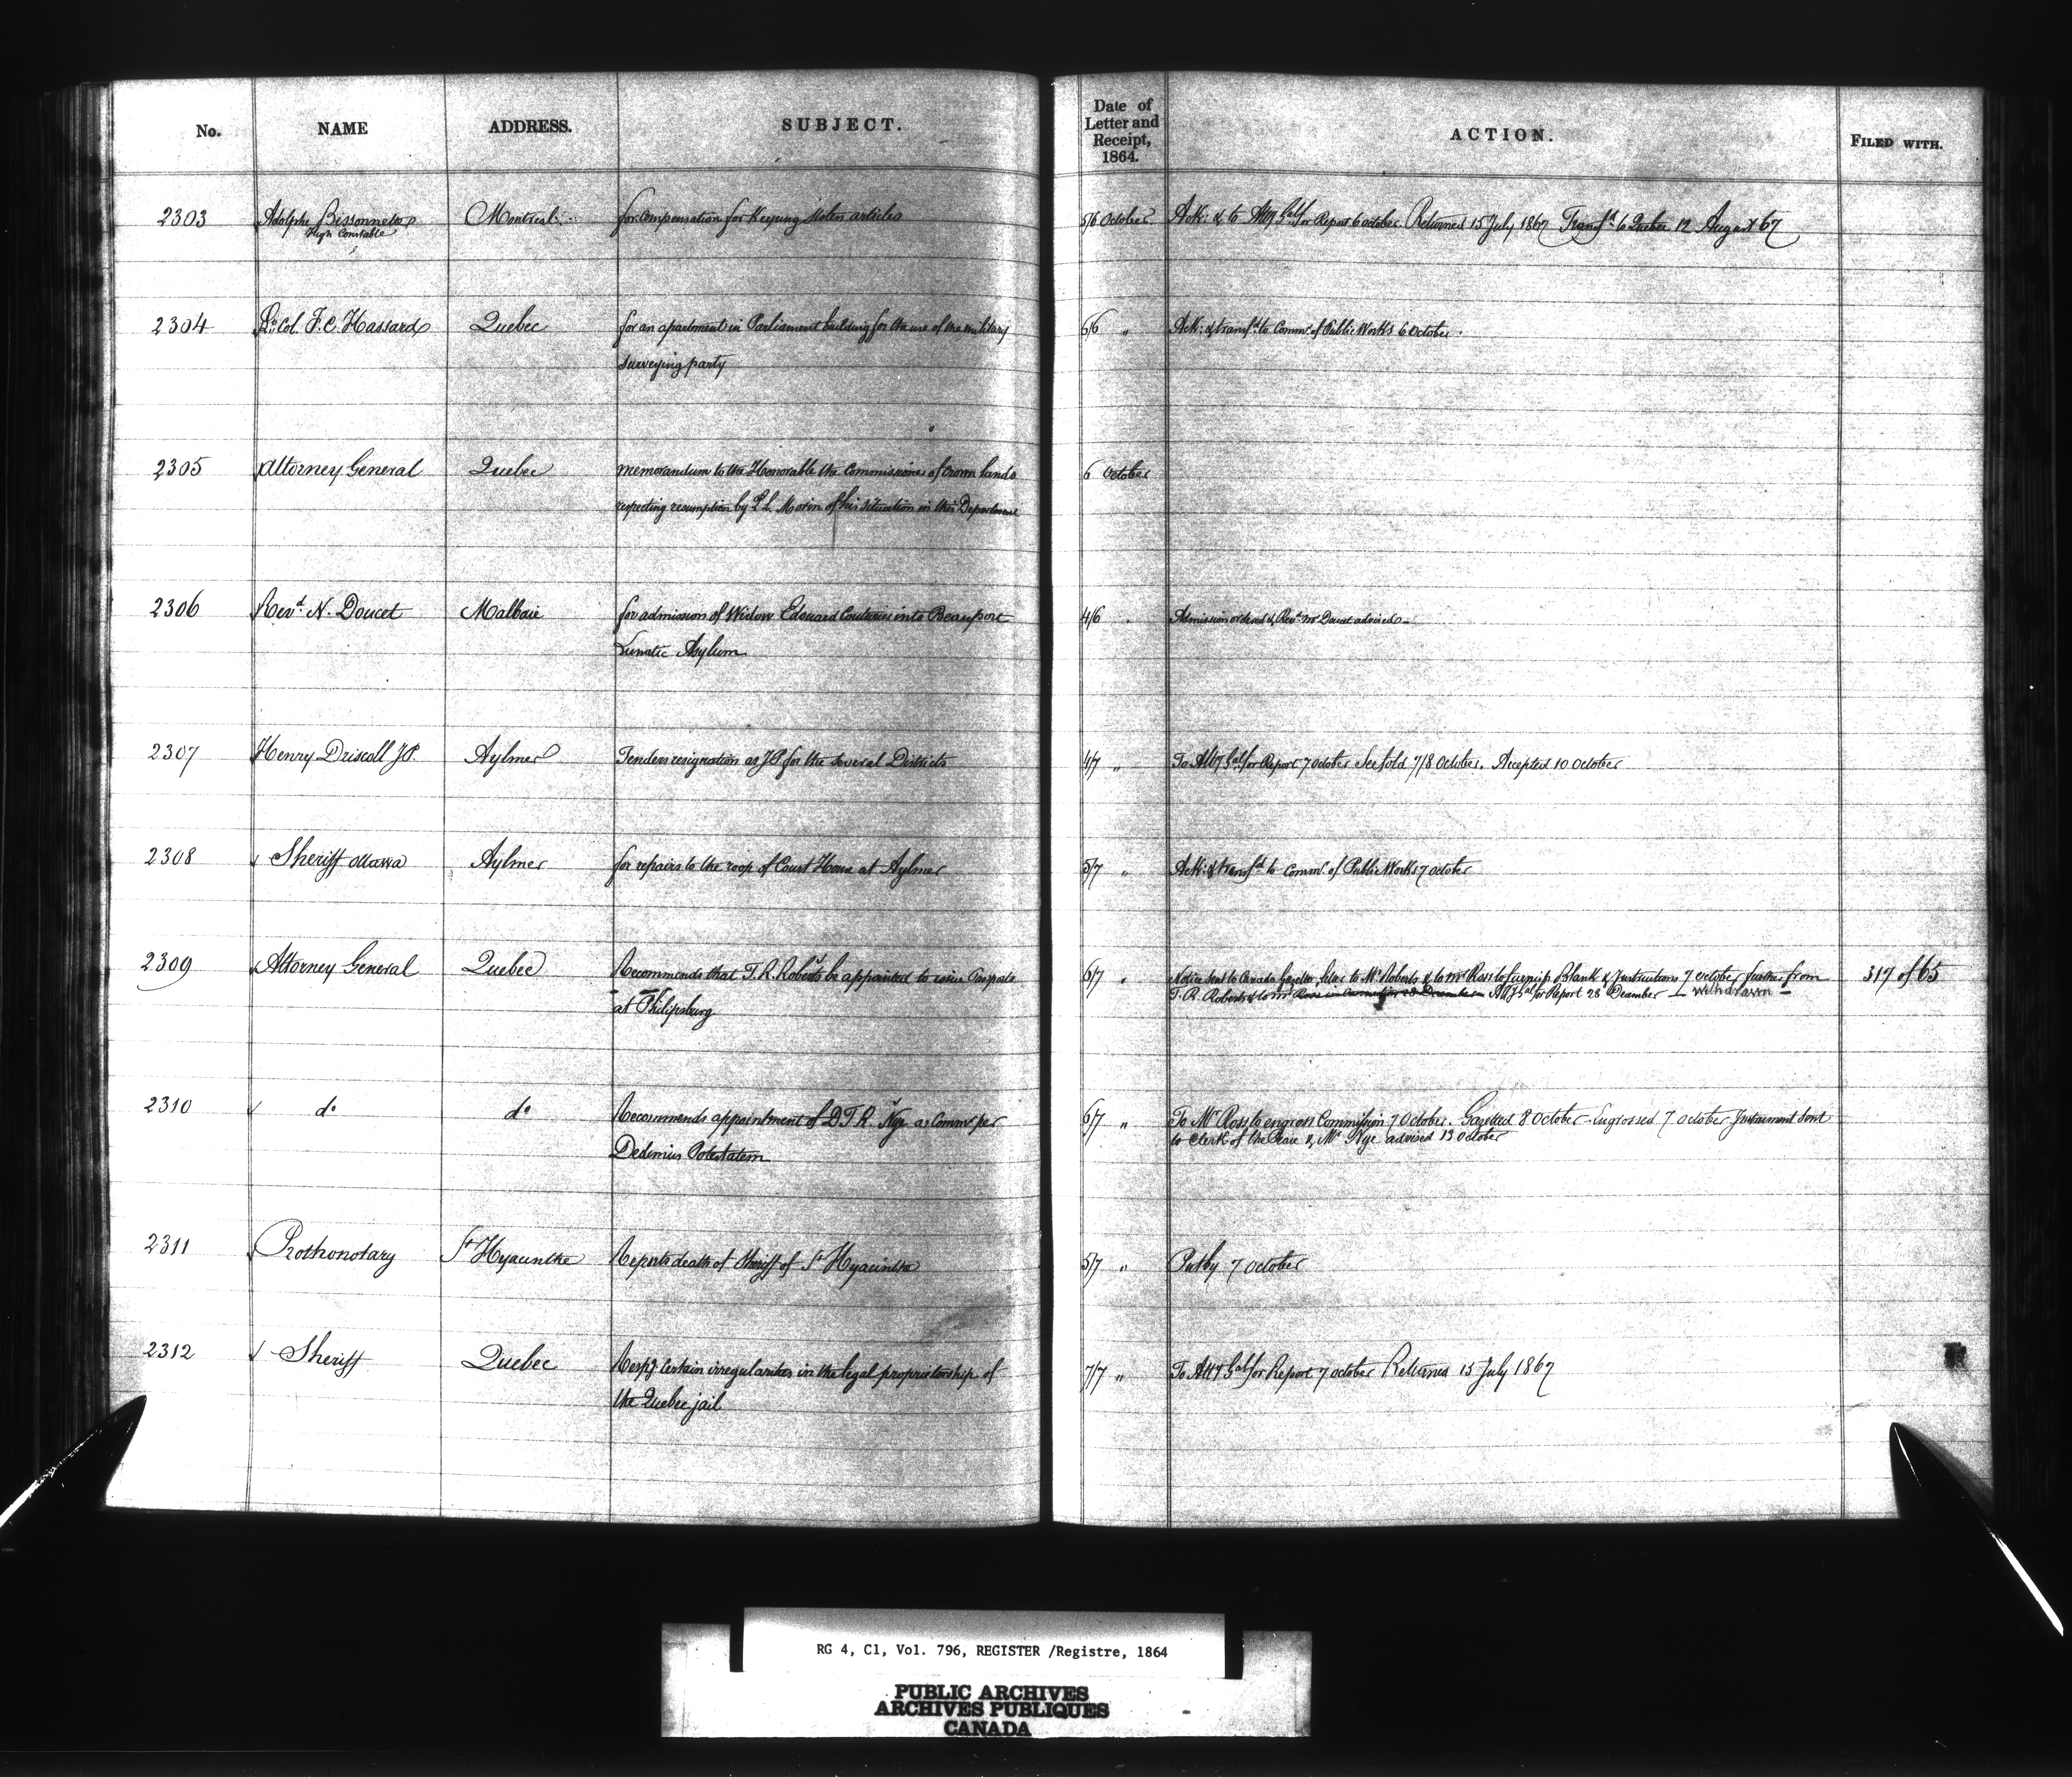 No. NAME ADDRESS. SUBJECT. Date of Letter and Receipt, 1864. ACTION. FILED WITH.
2303 Adolphe Bissonnette Montreal for compensation for keeping stolen articles 5/6 October Ack: & to Atty Gal for Report 6 October. Returned 15 July 1867 Transfd to Quebec 12 August 67
High Constable
2304 Lt: Col. F. C. Hassard Quebec for an apartment in Parliament building for the use of the military 6/6 " Ack: & transfd to Commr of Public Works 6 October.
surveying party
2305 Attorney General Quebec memorandum to the Honorable the Commissioner of Crown lands 6 October
respecting resumption by L. L. Morin of his situation in this Department
2306 Revd. N. Doucet Malbaie for admission of Widow Edouard Couturier into Beauport 4/6 Admission ordered & Revd Mr Doucet advised
Lunatic Asylum
2307 Henry Driscoll J.P. Aylmer Tenders resignation as JP for the several Districts 4/7 " To Atty Gal for Report 7 October 7/8 October. Accepted 10 October
2308 Sheriff Ottawa Aylmer for repairs to the roof of Court House at Aylmer 5/7 " Ack: & transfd to Commr. of Public Works 7 October
2309 Attorney General Quebec Recommends that T. R. Roberts be appointed to issue Passports 6/7 " Notice sent to Canada Gazette, letter to Mr Roberts & to Mr Ross to furnish Blank & Instructions 7 October further from 317 of 65
at Philipsburg T. R. Roberts & to Mr Ross Atty Gal for Report 28 December withdrawn
2310 do do Recommends appointment of D. T. R. Nye as Commr per 6/7 " To Mr Ross to engross Commission 7 October. Gazetted 8 October. Engrossed 7 October Instrument sent
Dedimus Potestatem to Clerk of the Peace & Mr Nye advised 13 October
2311 Prothonotary St Hyacinthe Reports death of Sheriff of St Hyacinthe 5/7 " Put by 7 October
2312 Sheriff Quebec Respg. certain irregularities in the legal proprietorship of 7/7 " To Atty Gal for Report 7 October Returned 15 July 1867
the Quebec jail
RG 4, C1, Vol. 796, REGISTER /Registre, 1864
PUBLIC ARCHIVES
ARCHIVES PUBLIQUES
CANADA